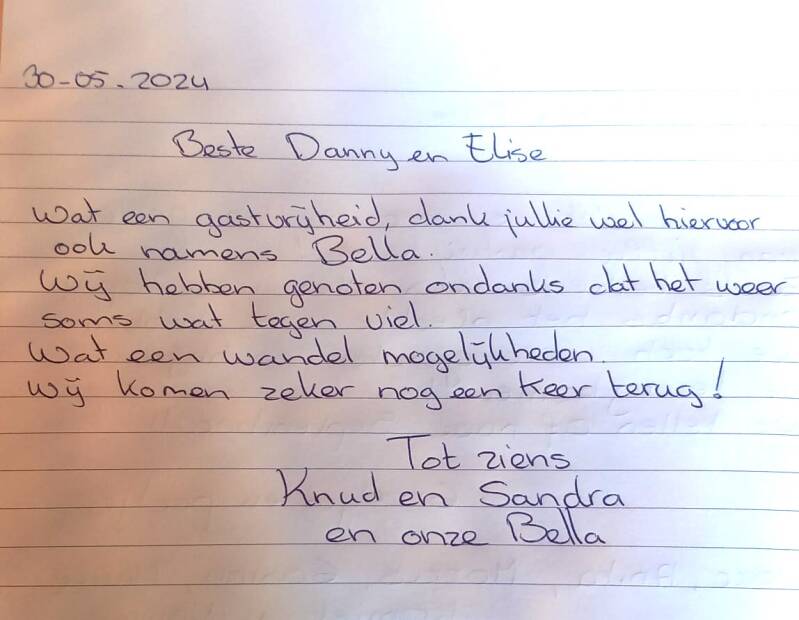 30-05.2024
Beste Danny en Elise
Wat een gastvrijheid, dank jullie wel hiervoor
ook namens Bella.
Wij hebben genoten ondanks dat het weer
soms wat tegen viel.
Wat een wandel mogelijkheden.
Wij komen zeker nog een keer terug!
Tot ziens
Knud en Sandra
en onze Bella